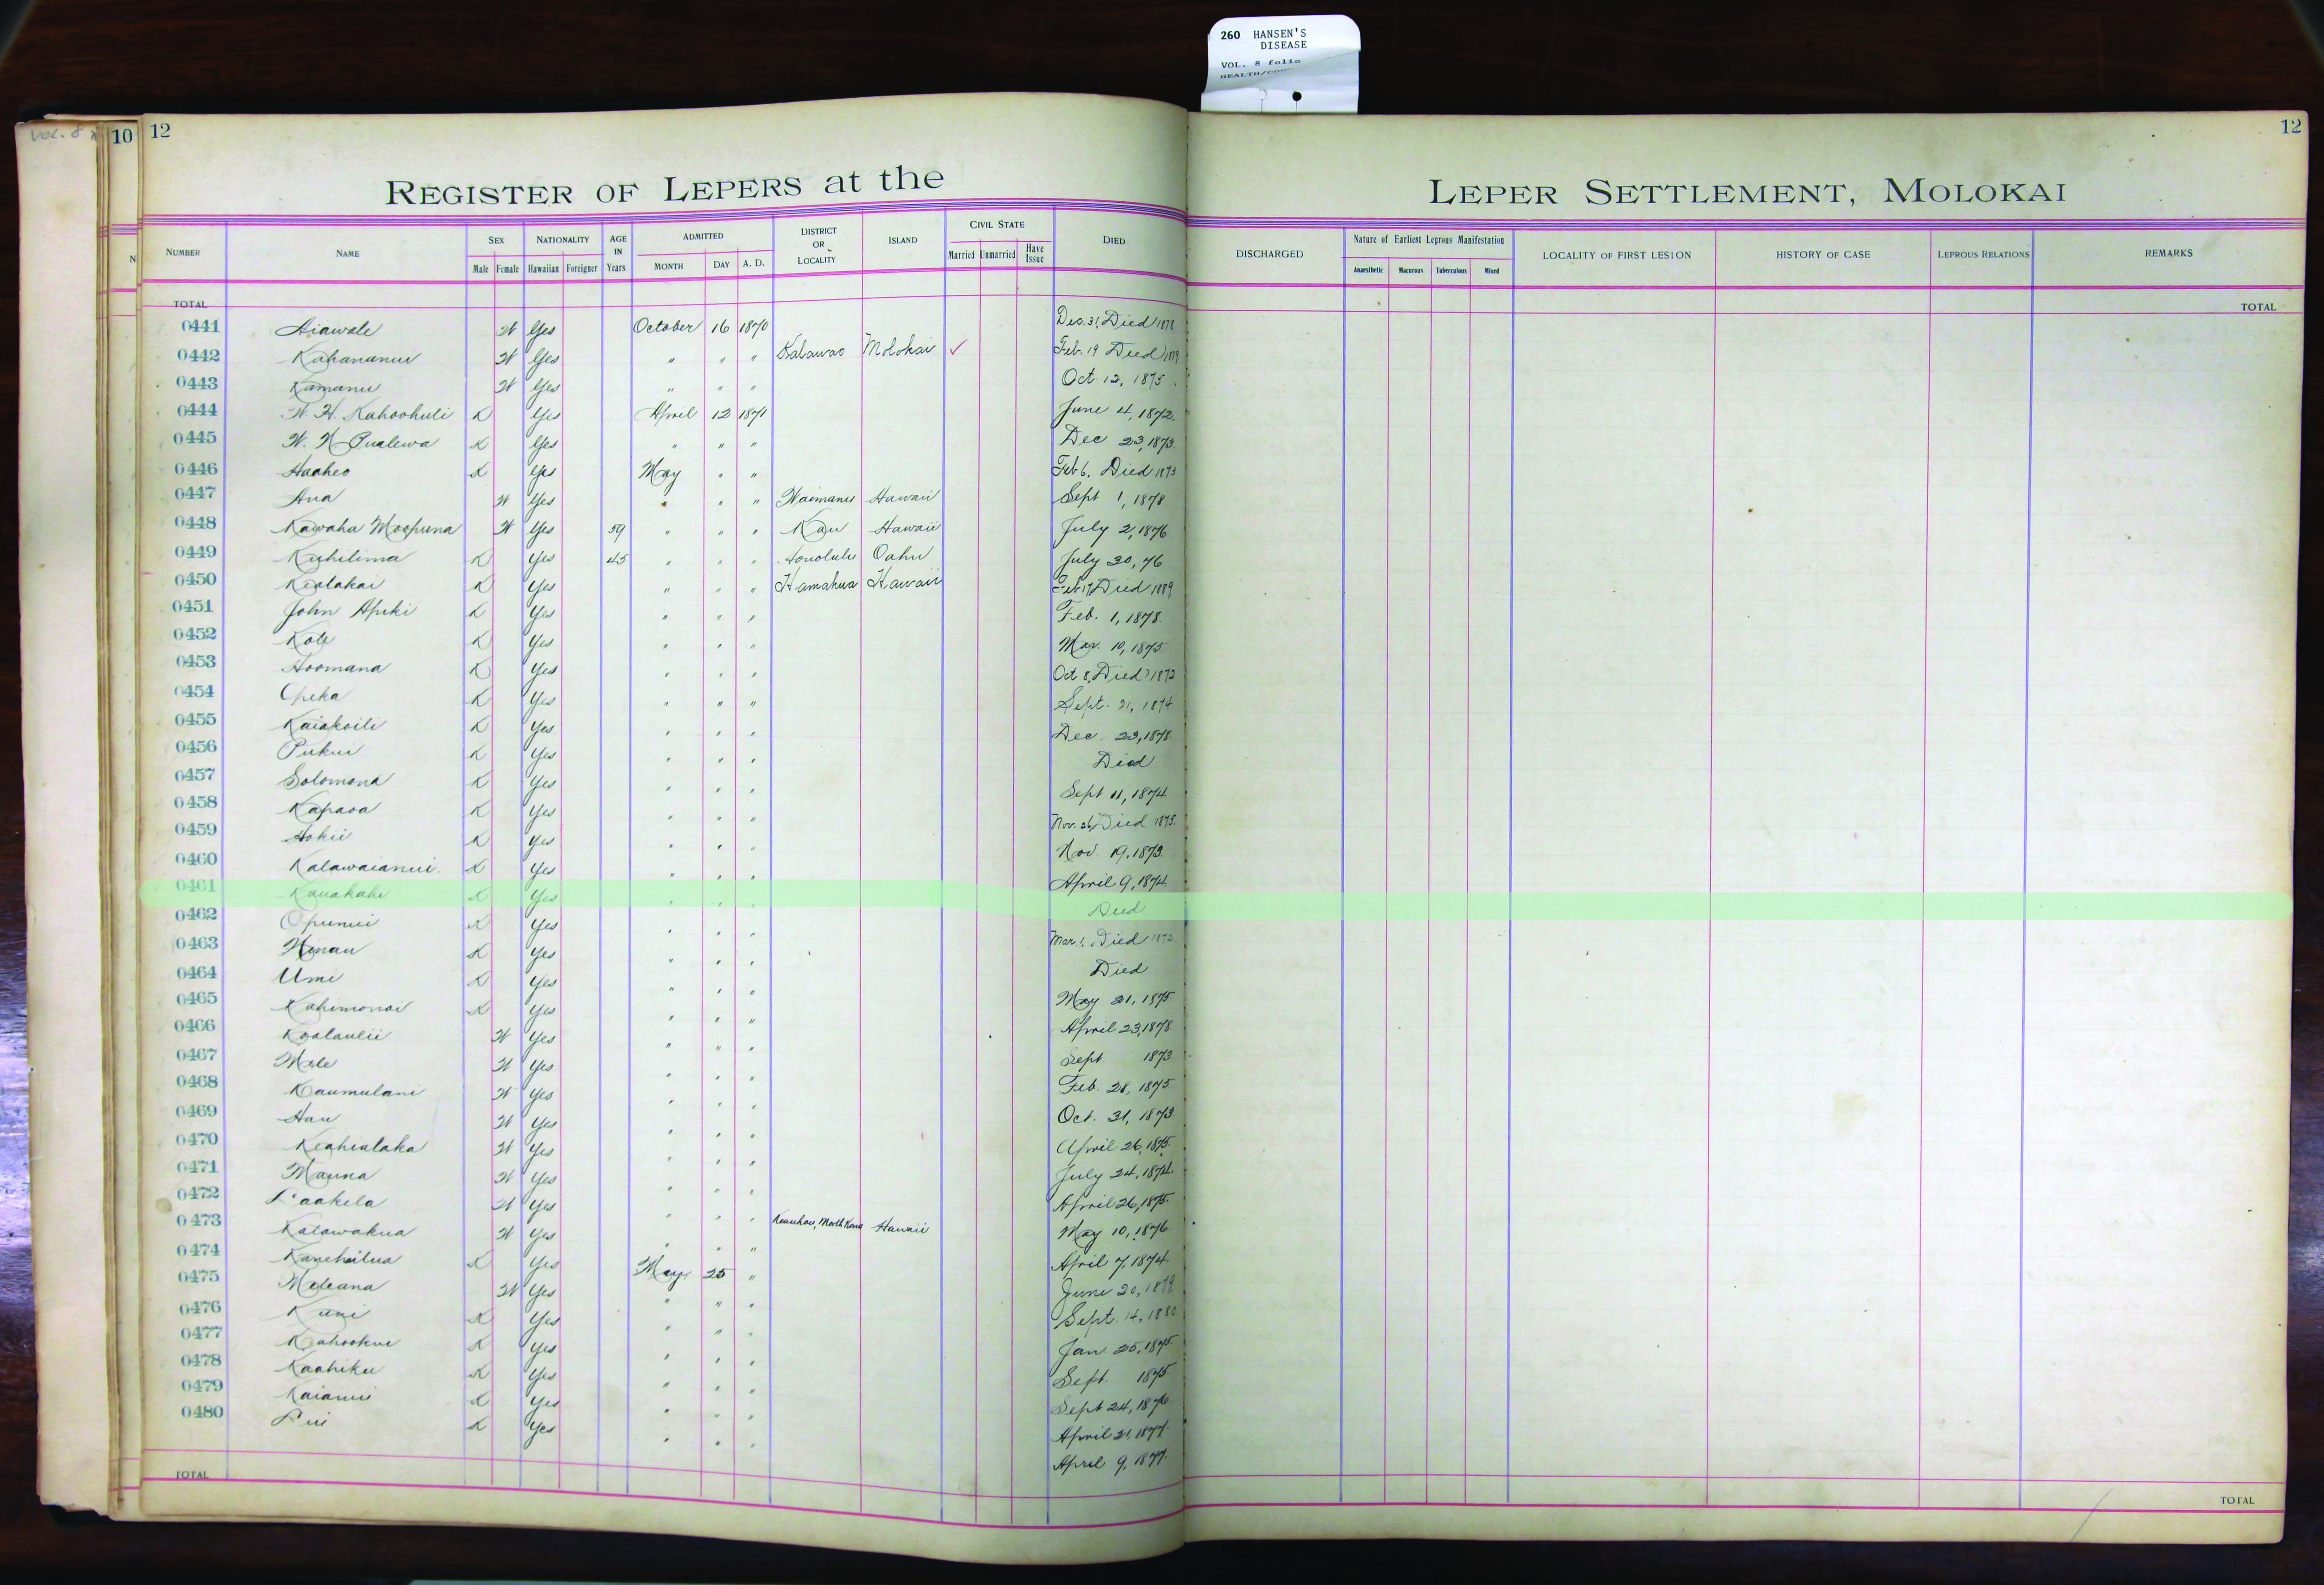 260 HANSEN'S
DISEASE
VOL. 8 folio
VOL. 8
10 12
12
REGISTER OF LEPERS at the LEPER SETTLEMENT, MOLOKAI
NUMBER NAME SEX NATIONALITY AGE IN Years ADMITTED DISTRICT OR LOCALITY ISLAND CIVIL STATE DIED DISCHARGED Nature of Earliest Leprous Manifestation LOCALITY OF FIRST LESION HISTORY OF CASE LEPROUS RELATIONS REMARKS
Male Female Hawaiian Foreigner MONTH DAY A. D. Married Unmarried Have Issue Anaesthetic Macurous Tuberculous Mixed
TOTAL TOTAL
0441 Aiawale W Yes October 16 1870 Dec. 31, Died 1878
0442 Kahananui W Yes " " " Kalawao Molokai ✓ Feb. 19 Died
0443 Kamanu W Yes " " " Oct. 12, 1875
0444 W. H. Kahoohuli K Yes April 12 1871 June 4, 1872
0445 W. N. Pualewa K Yes " " " Dec 23, 1873
0446 Haaheo K Yes May " " Feb 6, Died 1873
0447 Ana W Yes " " " Waimanu Hawaii Sept 1, 1878
0448 Kawaha Moopuna W Yes 59 " " " Kau Hawaii July 2, 1876
0449 Kuhilima K Yes 45 " " " Honolulu Oahu July 30, 76
0450 Kealakai K Yes " " " Hamakua Hawaii Feb 17, Died 1889
0451 John Apiki K Yes " " " Feb. 1, 1878
0452 Kole K Yes " " " Mar. 10, 1875
0453 Hoomana K Yes " " " Oct 8, Died 1873
0454 Opeka K Yes " " " Sept. 21, 1874
0455 Kaiakoili K Yes " " " Dec. 23, 1878
0456 Pukui K Yes " " " Died
0457 Solomona K Yes " " " Sept 11, 1874
0458 Kapaoa K Yes " " " Nov. 26, Died 1875
0459 Hokii K Yes " " " Nov. 19, 1873
0460 Kalawaianui K Yes " " " April 9, 1874
0461 Kauakahi K Yes " " " Died
0462 Opunui K Yes " " " Mar. 1, Died 1873
0463 Hinau K Yes " " " Died
0464 Umi K Yes " " " May 21, 1875
0465 Kahimonai K Yes " " " April 23, 1878
0466 Koolaulii W Yes " " " Sept 1873
0467 Mele W Yes " " " Feb. 28, 1875
0468 Kaumulani W Yes " " " Oct. 31, 1873
0469 Hau W Yes " " " April 26, 1875
0470 Keahialaka W Yes " " " July 24, 1874
0471 Mauna W Yes " " " April 26, 1875
0472 Paakela W Yes " " " May 10, 1876
0473 Kalawakua W Yes " " " Keauhou, North Kona Hawaii April 7, 1874
0474 Kanehailua K Yes May 25 " June 20, 1879
0475 Meleana W Yes " " " Sept. 14, 1880
0476 Kuni K Yes " " " Jan 25, 1875
0477 Kahookui K Yes " " " Sept. 1875
0478 Kaahiku K Yes " " " Sept 24, 1876
0479 Kaianui K Yes " " " April 21, 1877
0480 Pui K Yes " " " April 9, 1877
TOTAL TOTAL